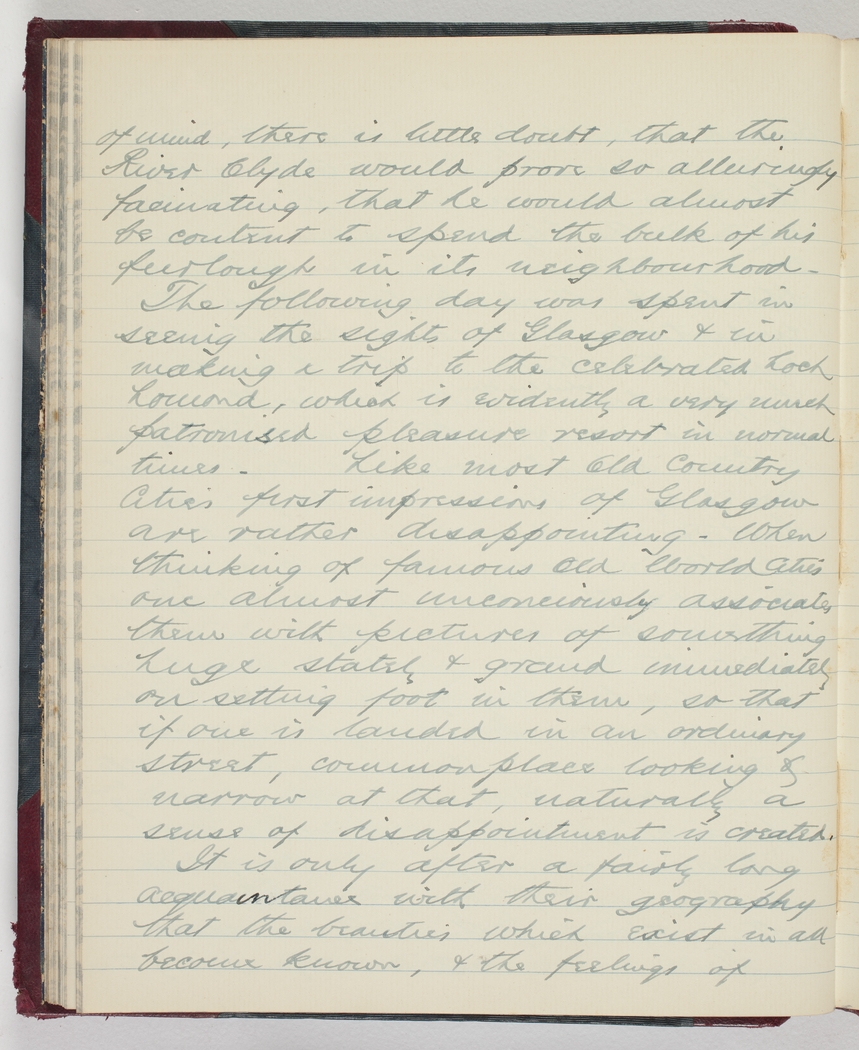 of mind, there is little doubt, that the
River Clyde would prove so alluringly
facinating, that he would almost
be content to spend the bulk of his
furlough in its neighbourhood -
The following day was spent in
seeing the sights of Glasgow & in
making a trip to the celebrated Loch
Lomond, which is evidently a very much
patronised pleasure resort in normal
times - Like most Old Country
Cities first impressions of Glasgow
are rather disappointing - When
thinking of famous Old World Cities
one almost unconciously associates
them with pictures of something
huge stately & grand immediately
on setting foot in them, so that
if one is landed in an ordinary
street, commonplace looking &
narrow at that, naturally a
sense of disappointment is created.
It is only after a fairly long
acquaintance with their geography
that the beauties which exist in all
become known, & the feelings of